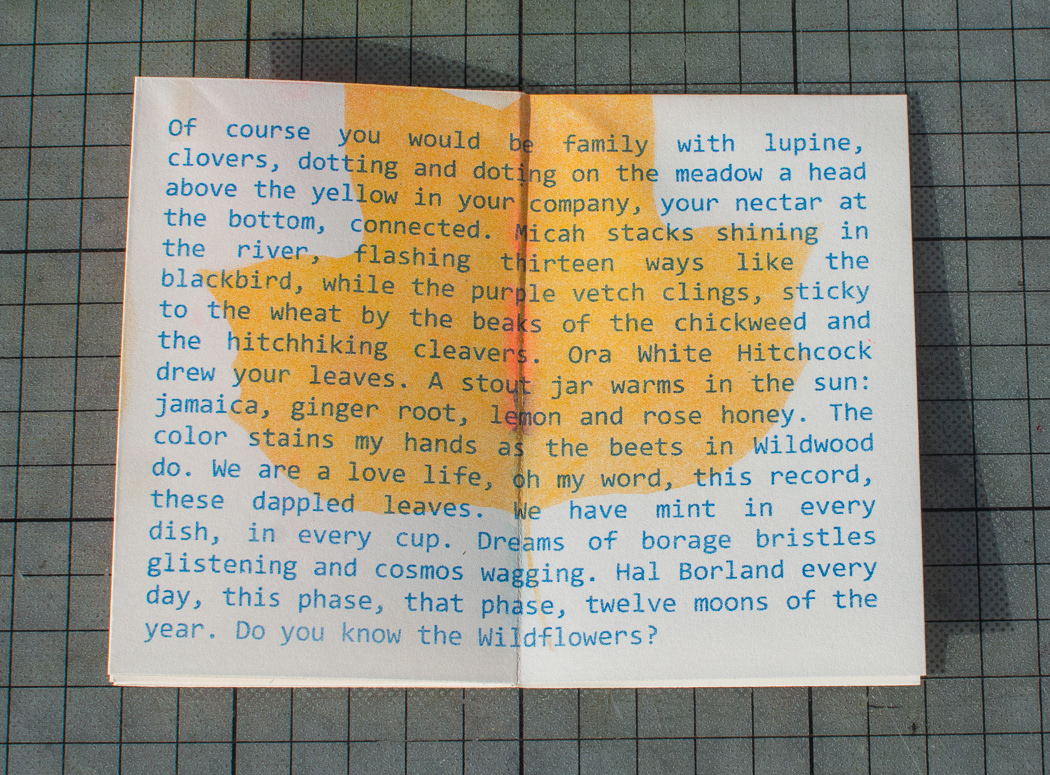 Of course you would be family with lupine,
clovers, dotting and doting on the meadow a head
above the yellow in your company, your nectar at
the bottom, connected. Micah stacks shining in
the river, flashing thirteen ways like the
blackbird, while the purple vetch clings, sticky
to the wheat by the beaks of the chickweed and
the hitchhiking cleavers. Ora White Hitchcock
drew your leaves. A stout jar warms in the sun:
jamaica, ginger root, lemon and rose honey. The
color stains my hands as the beets in Wildwood
do. We are a love life, oh my word, this record,
these dappled leaves. We have mint in every
dish, in every cup. Dreams of borage bristles
glistening and cosmos wagging. Hal Borland every
day, this phase, that phase, twelve moons of the
year. Do you know the Wildflowers?